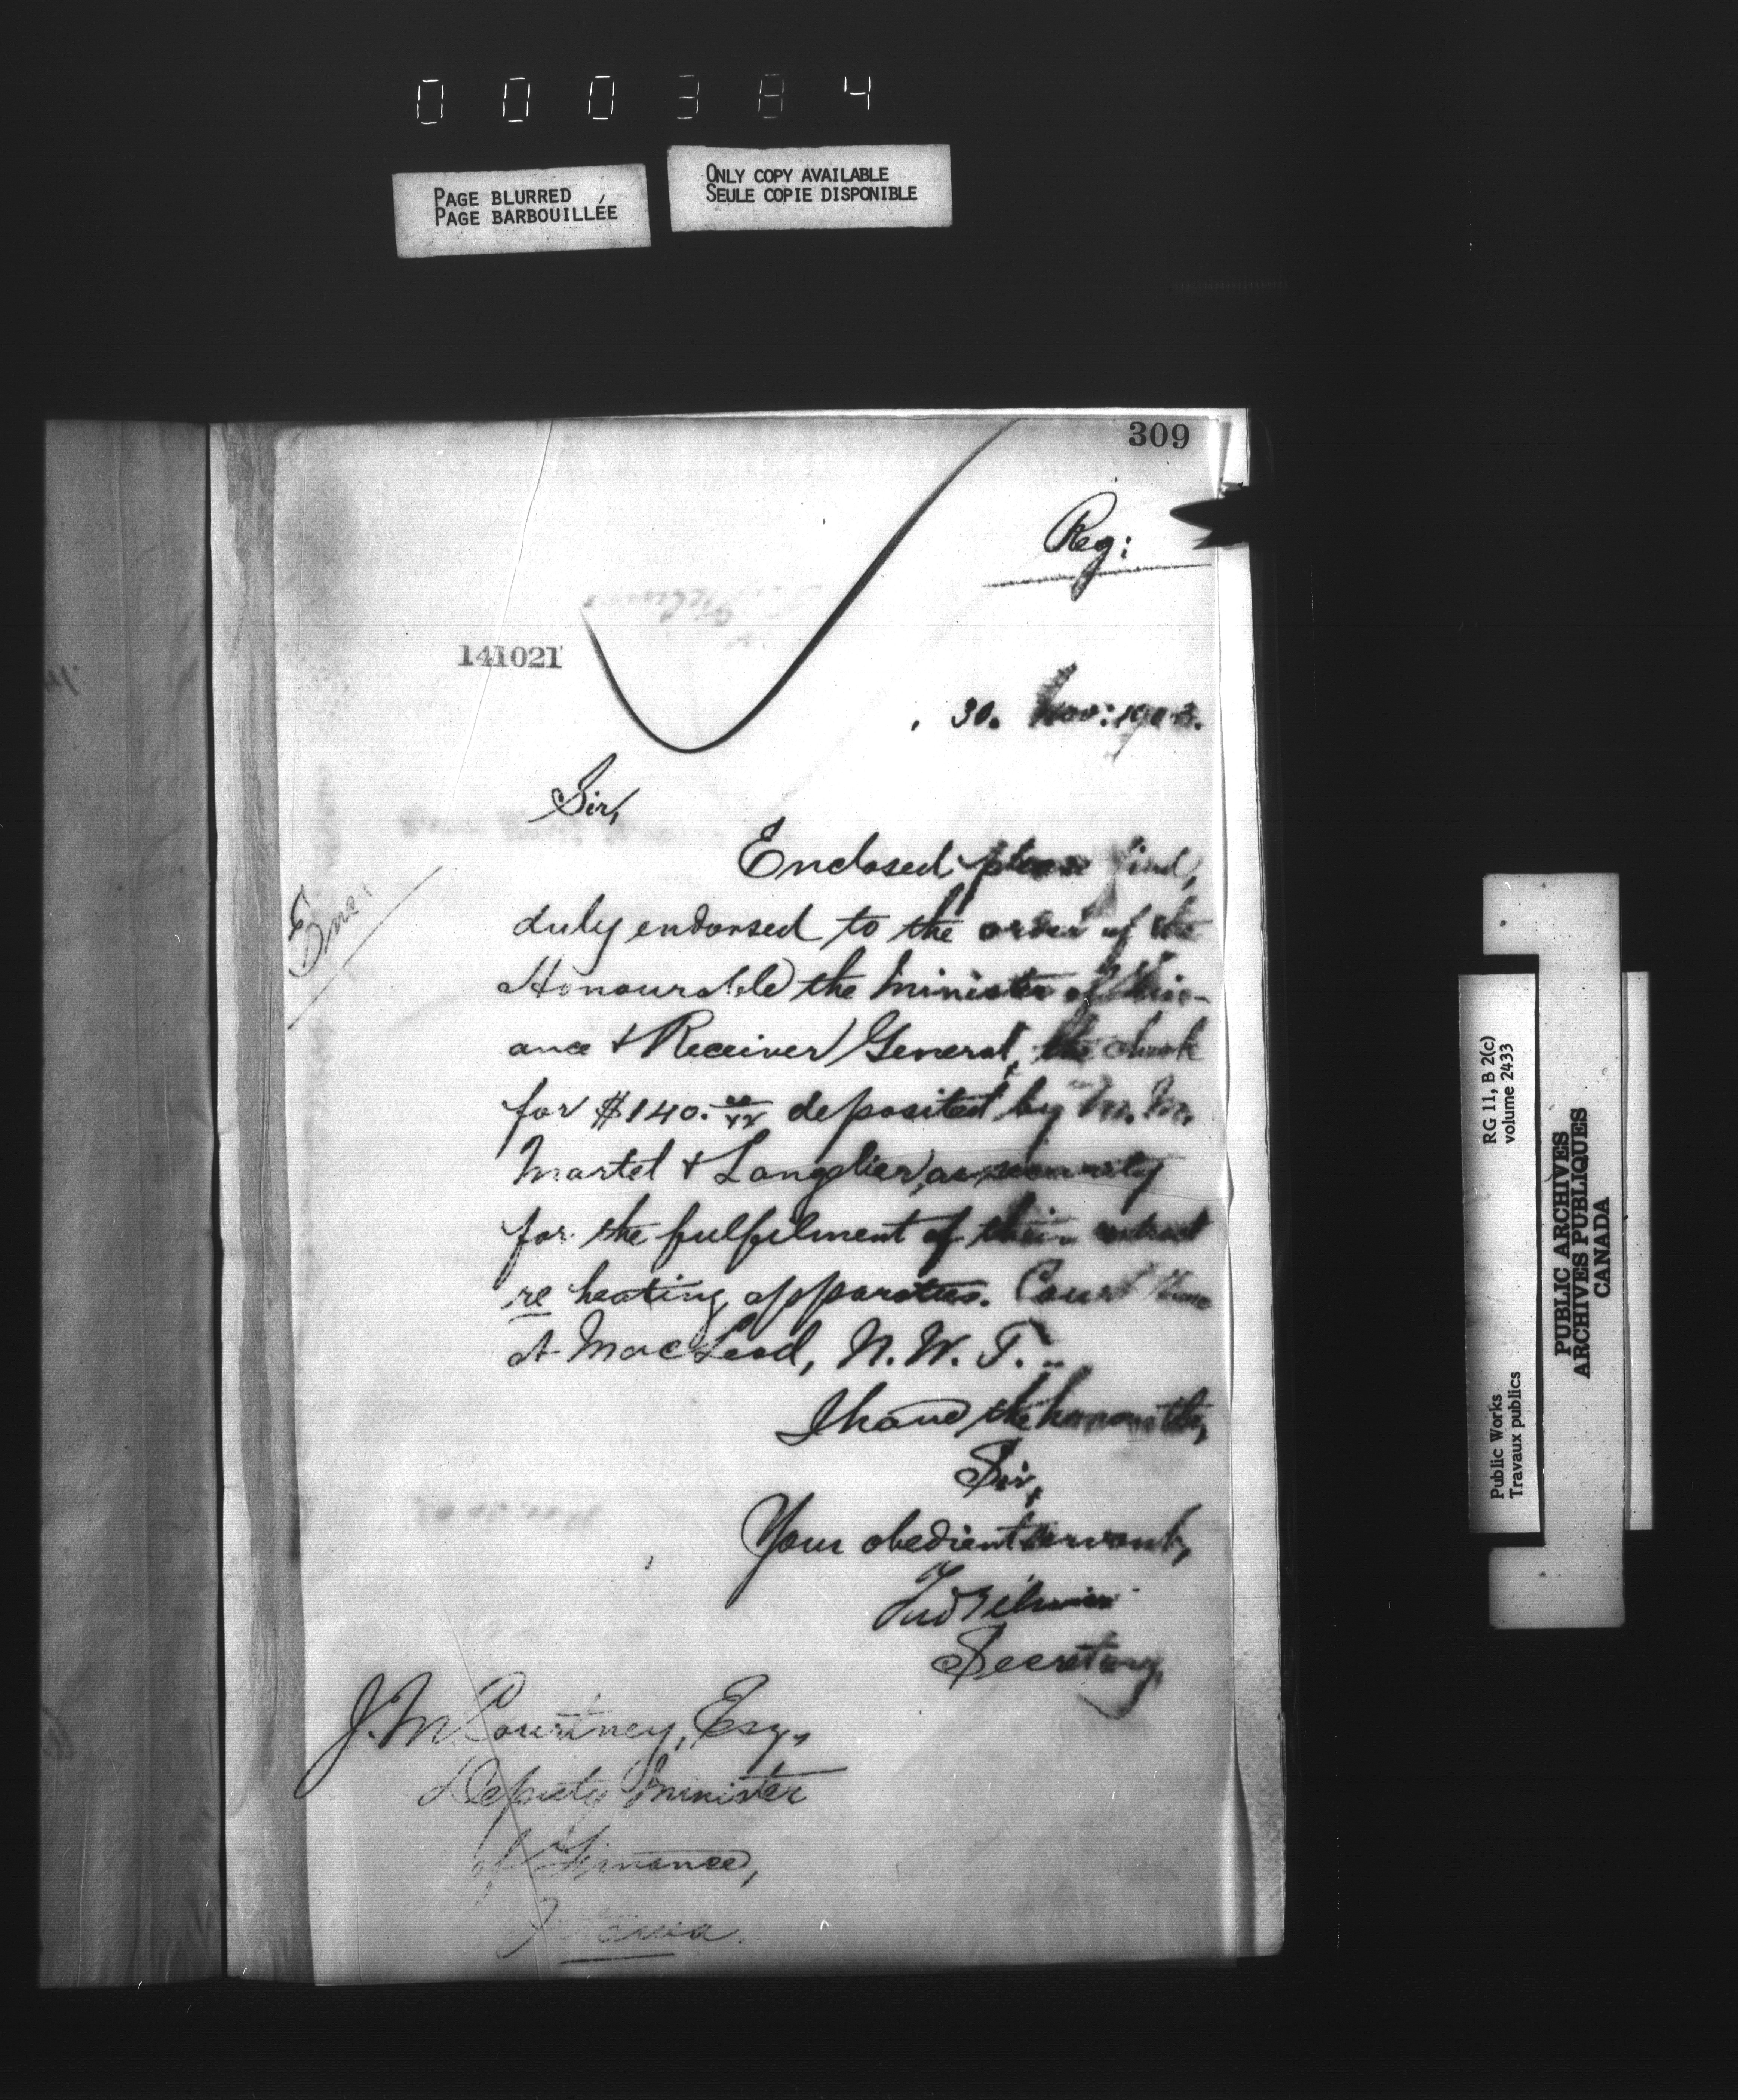 000384
PAGE BLURRED
PAGE BARBOUILLÉE
ONLY COPY AVAILABLE
SEULE COPIE DISPONIBLE
309
Reg:
141021
30. Nov: 1903.
Sir,
Enclosed please find,
duly endorsed to the order of the
Honourable the Minister of Fin-
ance & Receiver General, the check
for $140. 00/xx deposited by M. M.
Martel & Langelier, as security
for the fulfilment of their contract
re heating apparatus. Court House
at MacLeod, N. W. T.
I have the honour to be,
Sir,
Your obedient servant,
Fred Gélinas
Secretary.
J. M. Courtney, Esq.,
Deputy Minister
of Finance,
Ottawa.
RG 11, B 2(c)
volume 2433
Public Works
Travaux publics
PUBLIC ARCHIVES
ARCHIVES PUBLIQUES
CANADA